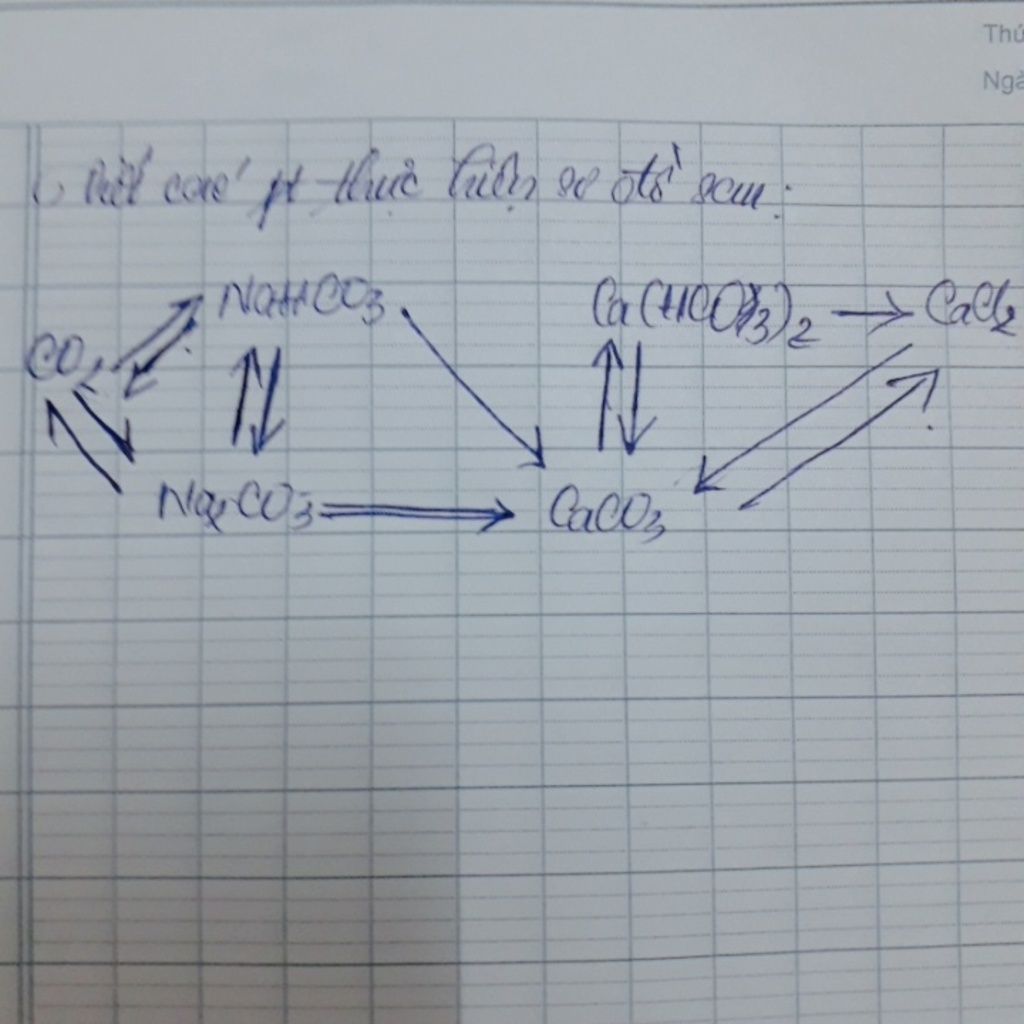 Thứ
Ngà
Viết các pt thực hiện sơ đồ sau:
NaHCO3 Ca(HCO3)2 → CaCl2
CO2
Na2CO3 → CaCO3